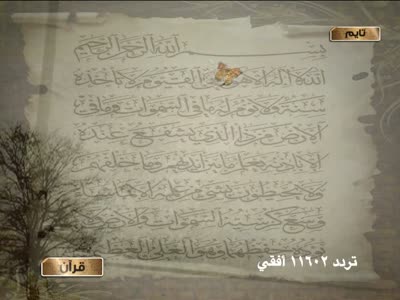 تايم
بسم الله الرحمن الرحيم
الله لا إله إلا هو الحي القيوم لا تأخذه
سنة ولا نوم له ما في السموات وما في
الأرض من ذا الذي يشفع عنده
إلا بإذنه يعلم ما بين أيديهم وما خلفهم
ولا يحيطون بشيء من علمه إلا بما شاء
وسع كرسيه السموات والأرض
ولا يؤوده حفظهما وهو العلي العظيم
تردد ١١٦٠٢ افقي
قرآن